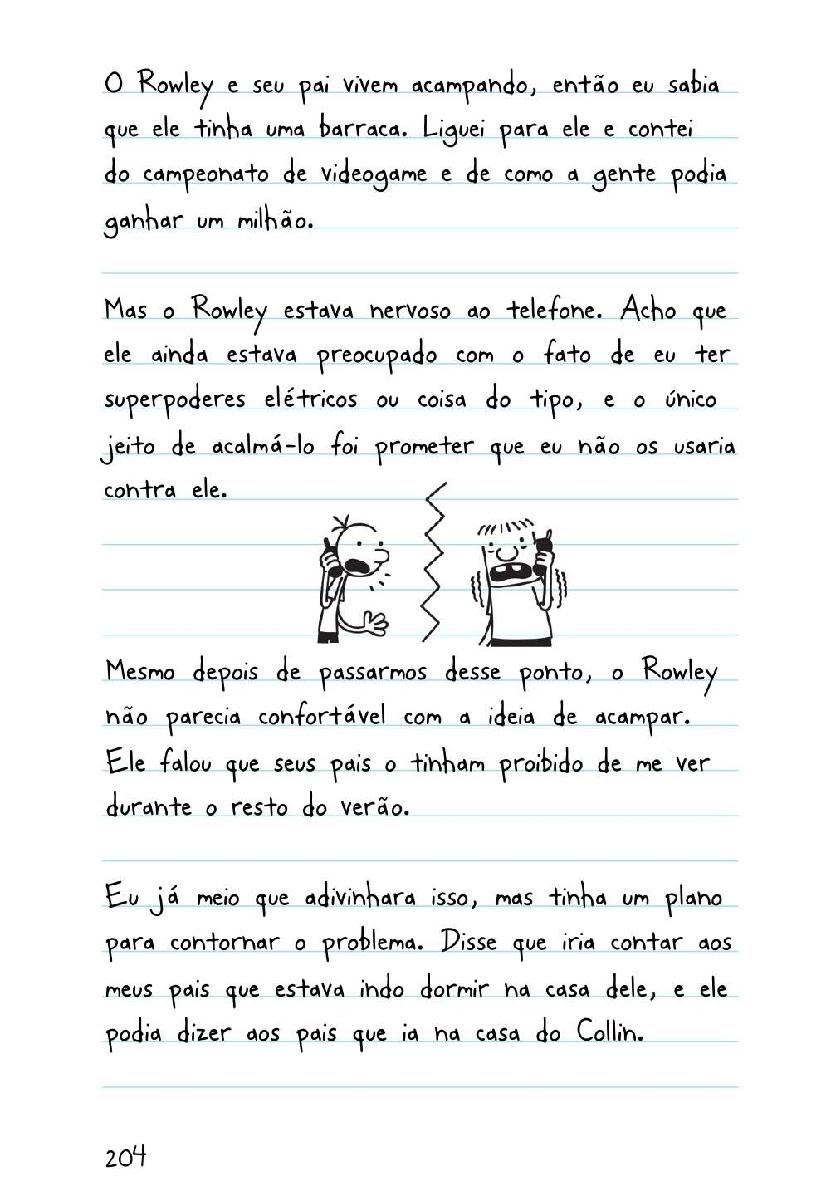 O Rowley e seu pai vivem acampando, então eu sabia
que ele tinha uma barraca. Liguei para ele e contei
do campeonato de videogame e de como a gente podia
ganhar um milhão.
Mas o Rowley estava nervoso ao telefone. Acho que
ele ainda estava preocupado com o fato de eu ter
superpoderes elétricos ou coisa do tipo, e o único
jeito de acalmá-lo foi prometer que eu não os usaria
contra ele.
Mesmo depois de passarmos desse ponto, o Rowley
não parecia confortável com a ideia de acampar.
Ele falou que seus pais o tinham proibido de me ver
durante o resto do verão.
Eu já meio que adivinhara isso, mas tinha um plano
para contornar o problema. Disse que iria contar aos
meus pais que estava indo dormir na casa dele, e ele
podia dizer aos pais que ia na casa do Collin.
204